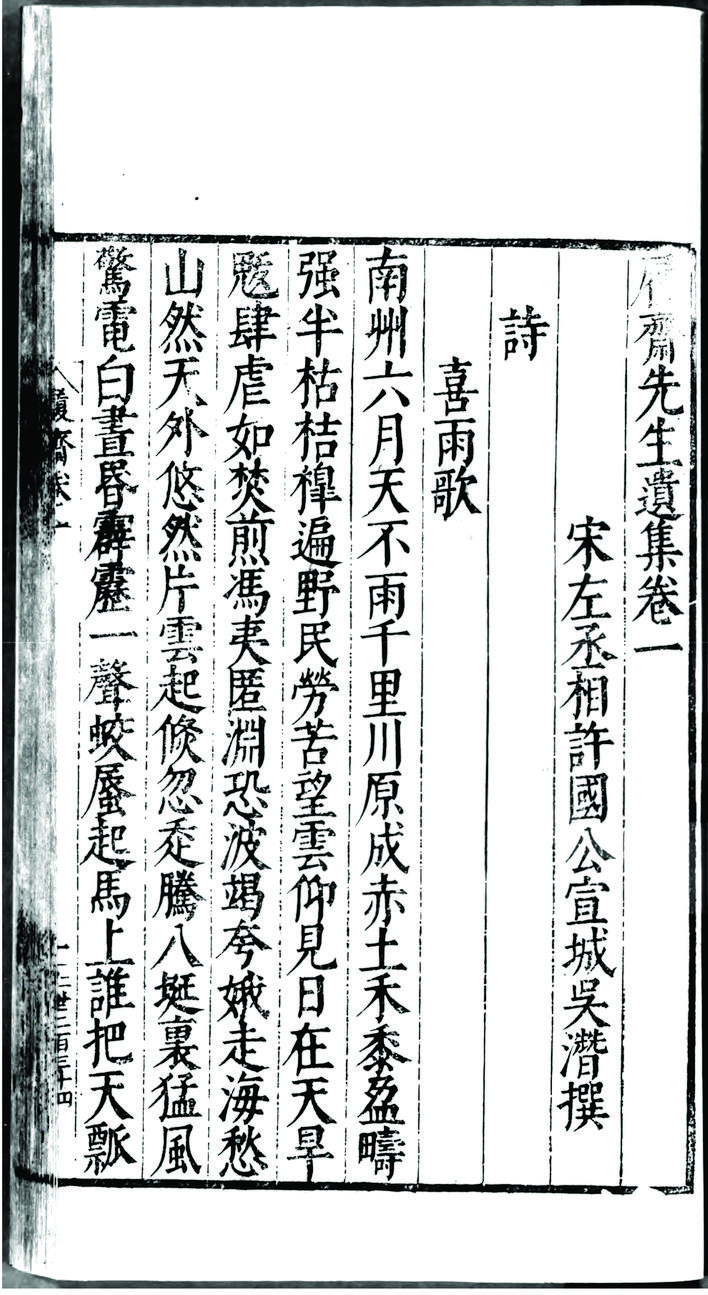 齋先生遺集卷一
宋左丞相許國公宣城吳潛撰
詩
喜雨歌
南州六月天不雨千里川原成赤土禾黍盈疇
强半枯桔槹遍野民勞苦望雲仰見日在天旱
魃肆虐如焚煎馮夷匿淵恐波竭夸娥走海愁
山然天外悠然片雲起倐忽迻騰八埏裏猛風
驚電白晝昏霹靂一聲蛟蜃起馬上誰把天瓢